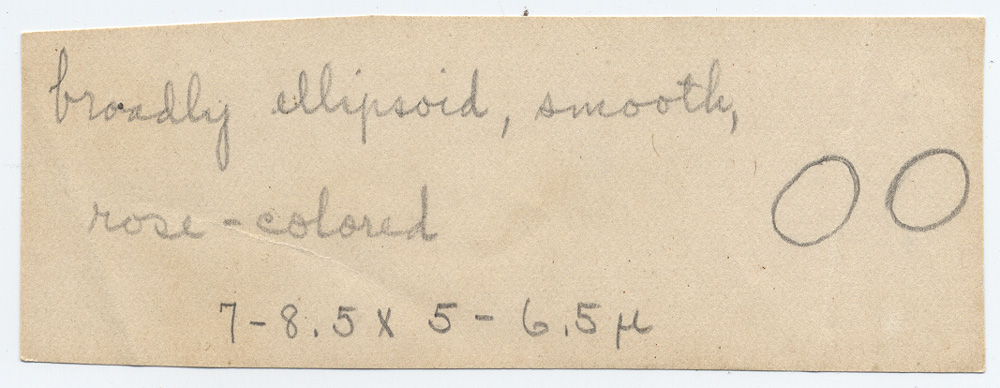 broadly ellipsoid, smooth,
rose-colored
7-8.5 x 5-6.5 µ